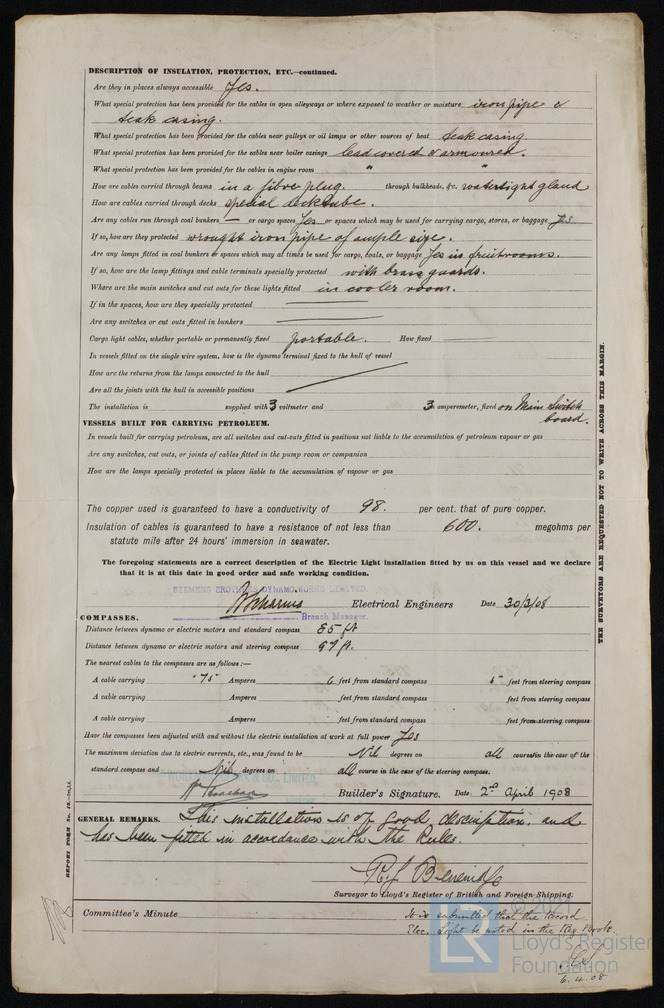 DESCRIPTION OF INSULATION, PROTECTION, ETC.—continued.
Are they in places always accessible Yes.
What special protection has been provided for the cables in open alleyways or where exposed to weather or moisture iron pipe &
teak casing.
What special protection has been provided for the cables near galleys or oil lamps or other sources of heat teak casing
What special protection has been provided for the cables near boiler casings lead covered & armoured.
What special protection has been provided for the cables in engine room " "
How are cables carried through beams in a fibre plug. through bulkheads, &c. watertight gland
How are cables carried through decks special deck tube.
Are any cables run through coal bunkers — or cargo spaces Yes or spaces which may be used for carrying cargo, stores, or baggage Yes
If so, how are they protected wrought iron pipe of ample size.
Are any lamps fitted in coal bunkers or spaces which may at times be used for cargo, coals, or baggage Yes in fruitrooms.
If so, how are the lamp fittings and cable terminals specially protected with brass guards.
Where are the main switches and cut outs for these lights fitted in cooler room.
If in the spaces, how are they specially protected
Are any switches or cut outs fitted in bunkers
Cargo light cables, whether portable or permanently fixed portable. How fixed
In vessels fitted on the single wire system, how is the dynamo terminal fixed to the hull of vessel
How are the returns from the lamps connected to the hull
Are all the joints with the hull in accessible positions
The installation is supplied with 3 voltmeter and 3 amperemeter, fixed on Main Switch
board.
VESSELS BUILT FOR CARRYING PETROLEUM.
In vessels built for carrying petroleum, are all switches and cut-outs fitted in positions not liable to the accumulation of petroleum vapour or gas
Are any switches, cut outs, or joints of cables fitted in the pump room or companion
How are the lamps specially protected in places liable to the accumulation of vapour or gas
The copper used is guaranteed to have a conductivity of 98. per cent. that of pure copper.
Insulation of cables is guaranteed to have a resistance of not less than 600. megohms per
statute mile after 24 hours' immersion in seawater.
The foregoing statements are a correct description of the Electric Light installation fitted by us on this vessel and we declare
that it is at this date in good order and safe working condition.
SIEMENS BROTHERS DYNAMO WORKS LIMITED.
Electrical Engineers Date 30/3/08
Branch Manager.
COMPASSES.
Distance between dynamo or electric motors and standard compass 85 ft
Distance between dynamo or electric motors and steering compass 97 ft.
The nearest cables to the compasses are as follows:—
A cable carrying ·75 Amperes 6 feet from standard compass 6 feet from steering compass
A cable carrying Amperes feet from standard compass feet from steering compass
A cable carrying Amperes feet from standard compass feet from steering compass
Have the compasses been adjusted with and without the electric installation at work at full power Yes
The maximum deviation due to electric currents, etc., was found to be Nil degrees on all course in the case of the
standard compass and Nil degrees on all course in the case of the steering compass.
Builder's Signature. Date 2nd April 1908
GENERAL REMARKS. This installation is of good description, and
has been fitted in accordance with the Rules.
Surveyor to Lloyd's Register of British and Foreign Shipping.
Committee's Minute
It is submitted that the Record
Elec. Light be noted in the Reg. Book.
6.4.08
THE SURVEYORS ARE REQUESTED NOT TO WRITE ACROSS THIS MARGIN.
© 2021
LR
Lloyd's Register
Foundation